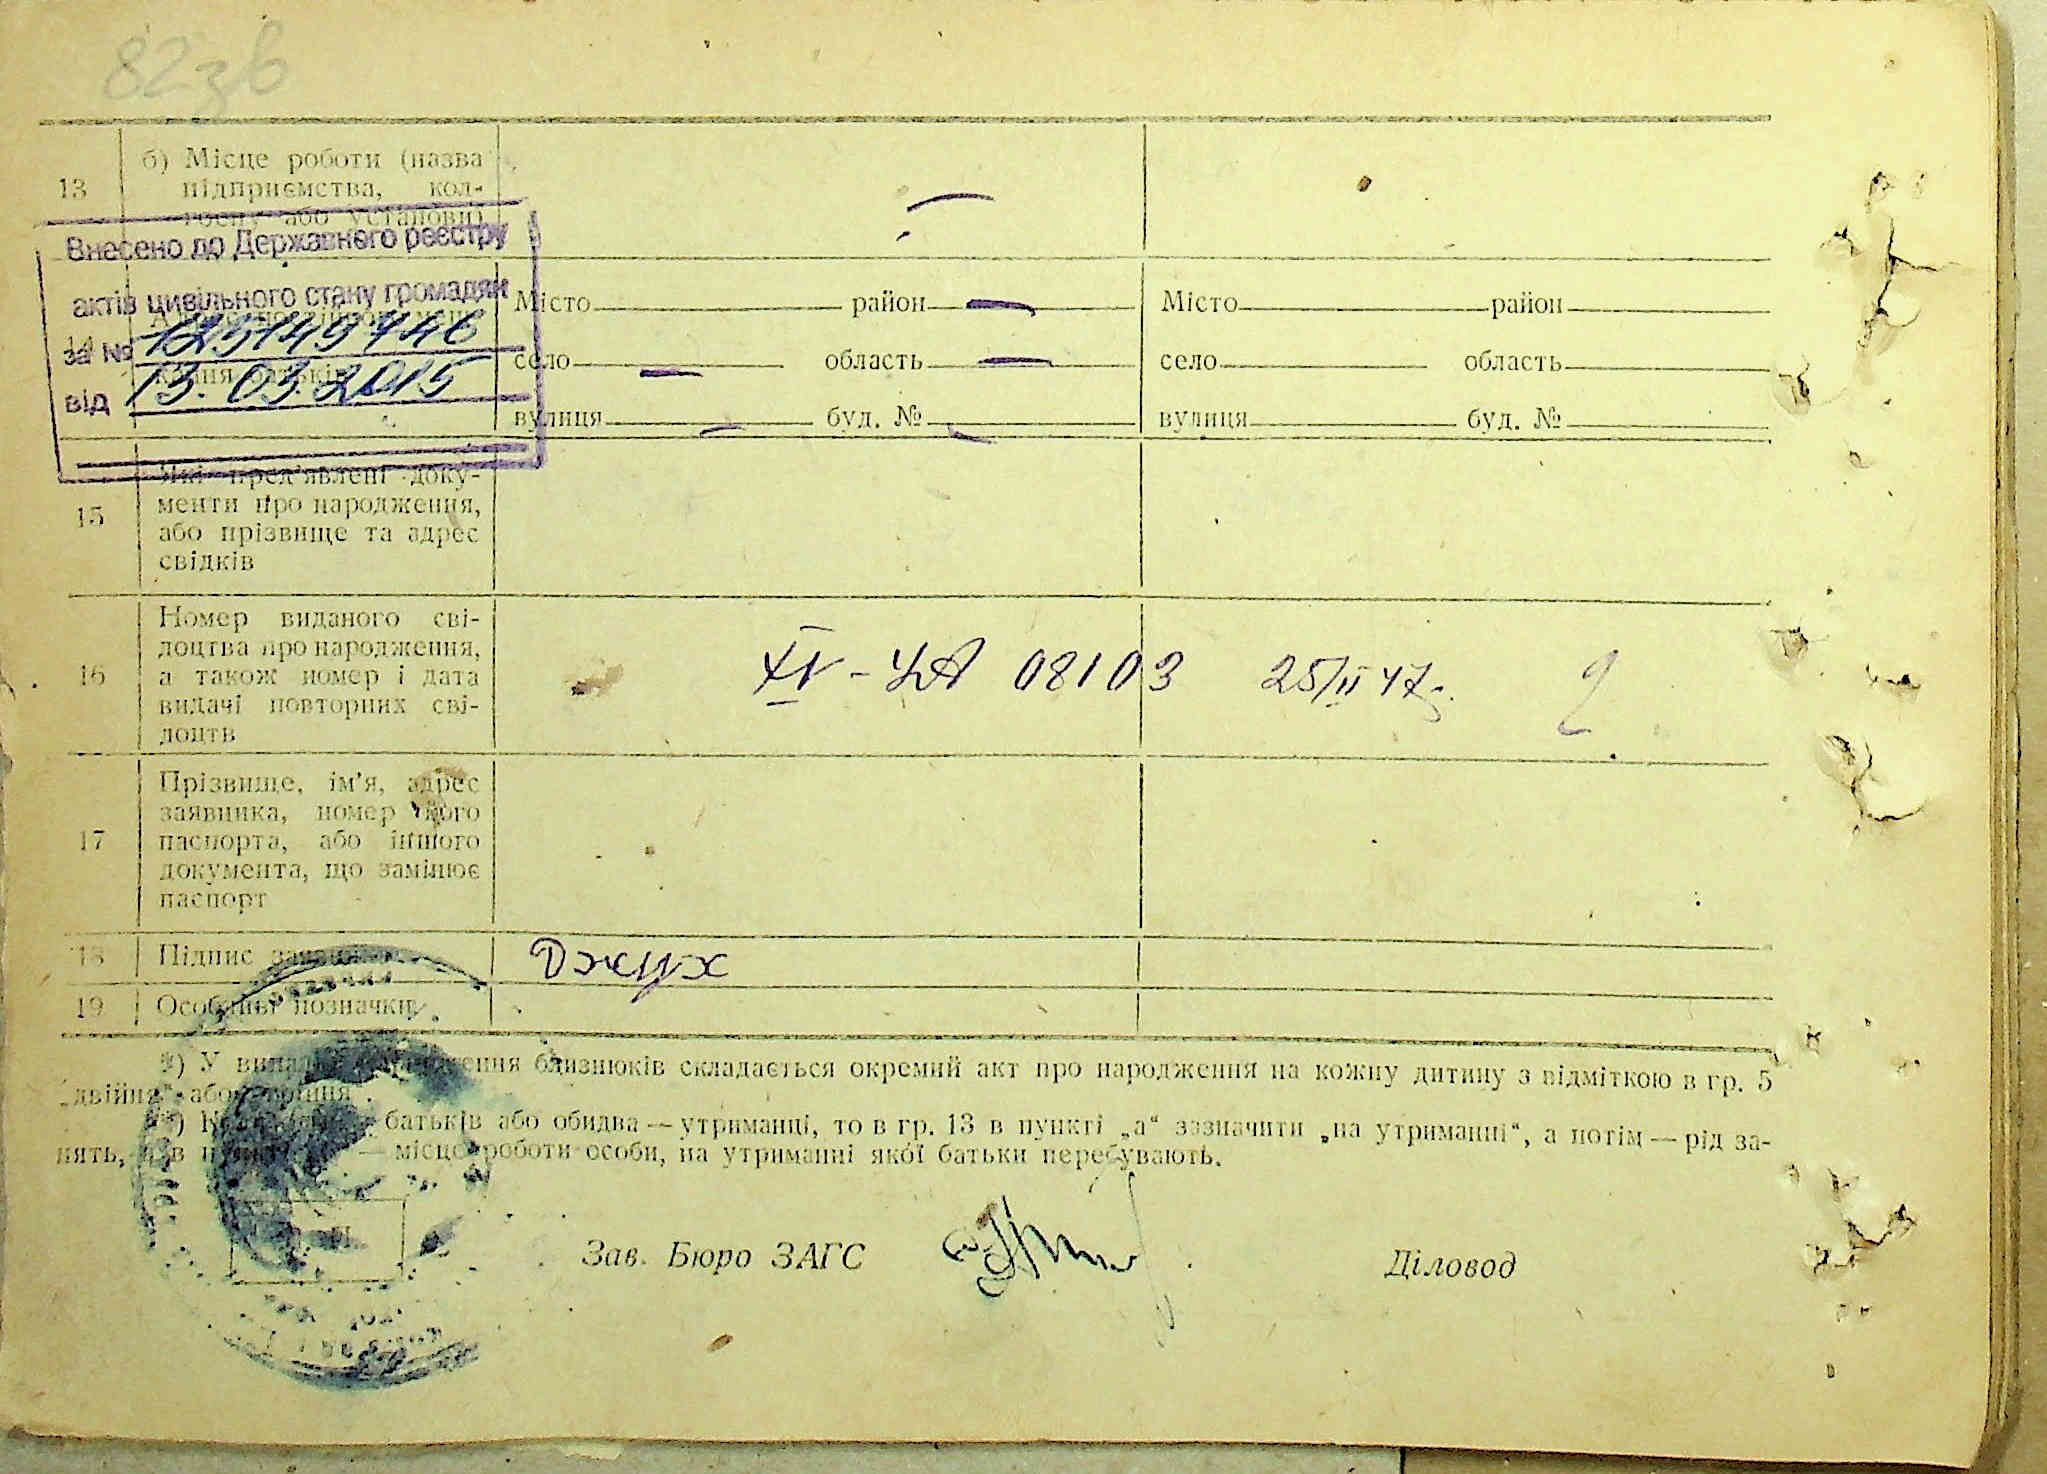 82зв
13
б) Місце роботи (назва
підприємства, кол-
госпу або установи)
Внесено до Державного реєстру
актів цивільного стану громадян
за № 125149746
від 13.03.2015
Місто район
село область
вулиця буд. №
Місто район
село область
вулиця буд. №
15
Які пред'явлені доку-
менти про народження,
або прізвище та адрес
свідків
16
Номер виданого сві-
доцтва про народження,
а також номер і дата
видачі повторних сві-
доцтв
IV-УА 08103 25/II 47р.
17
Прізвище, ім'я, адрес
заявника, номер його
паспорта, або іншого
документа, що замінює
паспорт
18
Підпис
Джух
19
Особливі позначки
*) У випадку народження близнюків складається окремий акт про народження на кожну дитину з відміткою в гр. 5
„двійня“ або
батьків або обидва — утриманці, то в гр. 13 в пункті „а“ зазначити „на утриманні“, а потім — рід за-
нять, а в — місце роботи особи, на утриманні якої батьки перебувають.
Зав. Бюро ЗАГС
Діловод